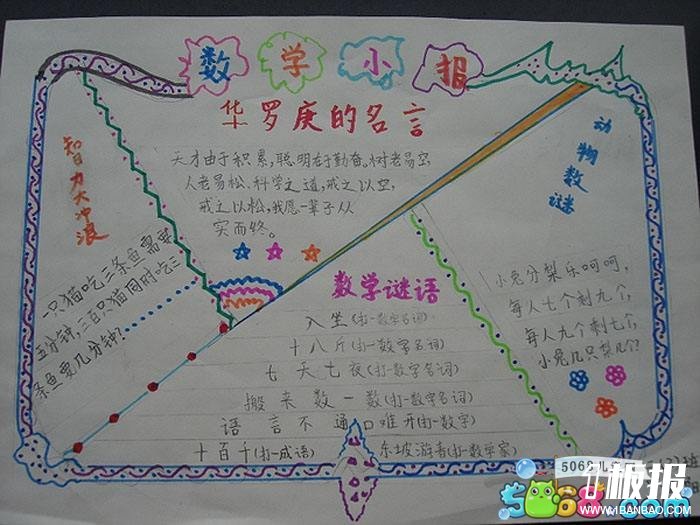 数学小报
华罗庚的名言
天才由于积累,聪明在于勤奋。树老易空,
人老易松,科学之道,戒之以空,
戒之以松,我愿一辈子从
实而终。
智力大冲浪
一只猫吃三条鱼需要
五分钟,三百只猫同时吃三
条鱼要几分钟?
数学谜语
入坐(打一数学名词)
十八斤(打一数学名词)
七天七夜(打一数学名词)
搬来数一数(打一数学名词)
语言不通口难开(打一数学)
十百千(打一成语)
东坡游春(打一数学家)
动物数谜
小兔分梨乐呵呵,
每人七个剩九个,
每人九个剩七个,
小兔几只梨几?
5068儿
极报
5068.com
WWW.1BANBAO.COM